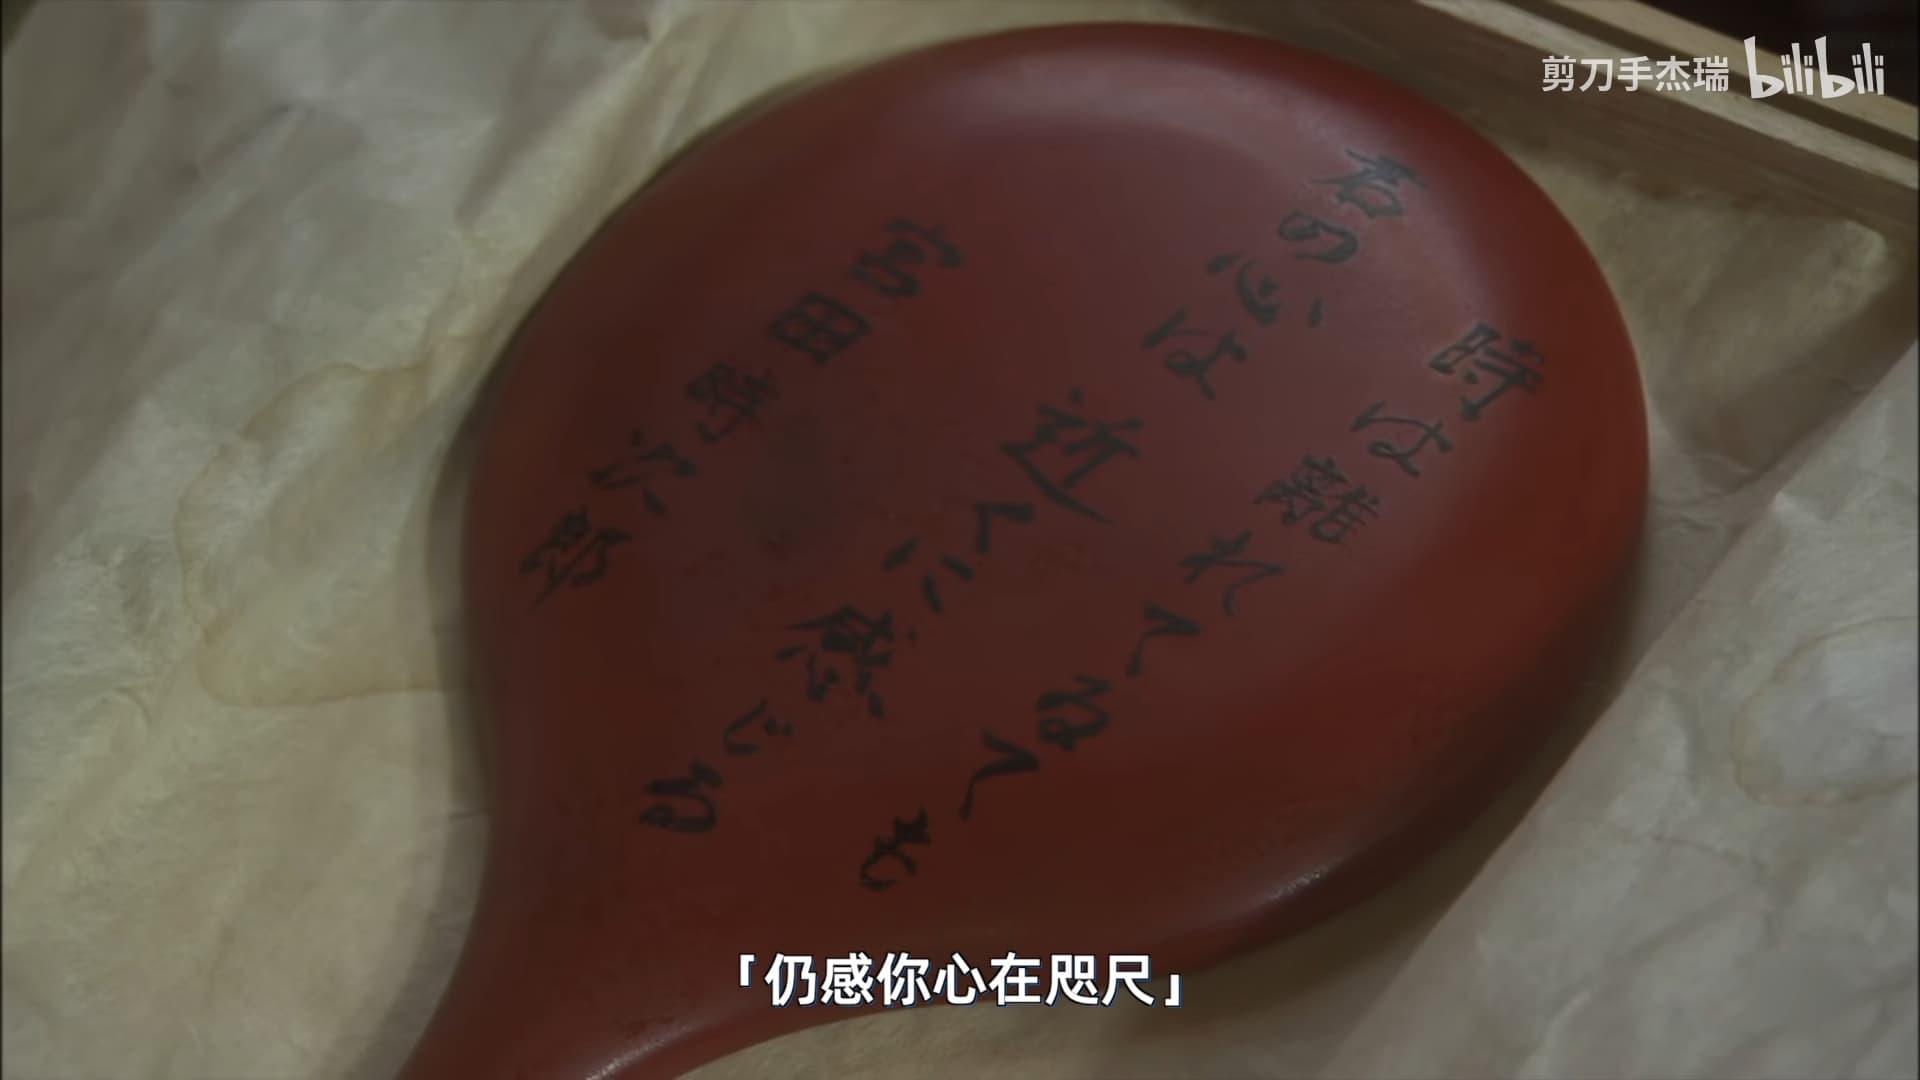 剪刀手杰瑞 bilibili
時は離れてるても
君の心は
近くに感じる
宮田時次郎
「仍感你心在咫尺」